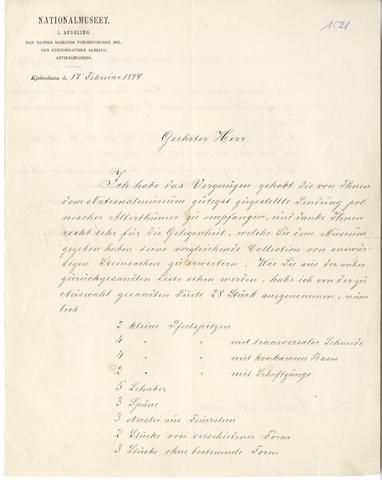 NATIONALMUSEET.
1. AFDELING.
DEN DANSKE SAMLINGS FORHISTORISKE DEL.
DEN ETHNOGRAFISKE SAMLING.
ANTIKSAMLINGEN.
1521
Kjøbenhavn d. 17 Februar 1894
Geehrter Herr
Ich habe das Vergnügen gehabt die von Ihnen
dem Nationalmuseum gütigst zugestellte Sendung pol-
nischer Alterthümer zu empfangen, und danke Ihnen
recht sehr für die Gelegenheit, welche Sie dem Museum
gegeben haben seine vergleichende Collection von auswär-
tigen Steinsachen zu erweitern. Wie Sie aus der anbei
zurückgesandten Liste sehen werden, habe ich von der zu
Auswahl gesandten Suite 28 Stück ausgenommen, näm
lich
2 kleine Pfeilspitzen
4 " " mit transversaler Schneide
4 " " mit konkavem Basis
2 " " mit Schaftzunge
5 Schaber
3 Späne
3 Nuclei aus Feuerstein
2 Stücke von verschiedener Form
3 Stücke ohne bestimmte Form